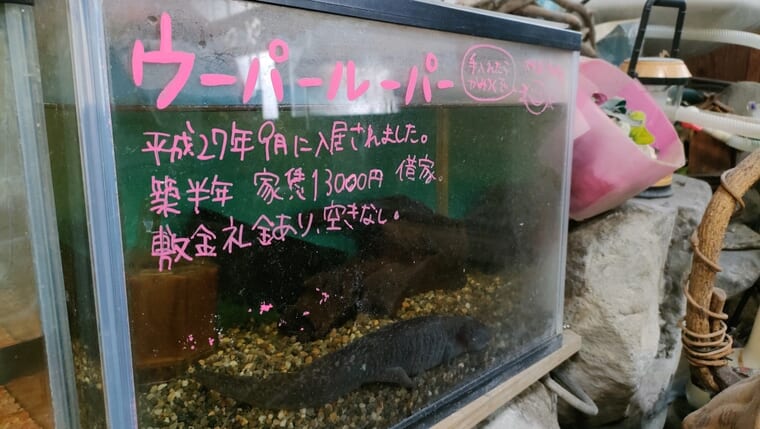 ウーパールーパー
手入れたら
かみつくで
平成27年9月に入居されました。
築半年 家賃13000円 借家。
敷金礼金あり、空きなし。